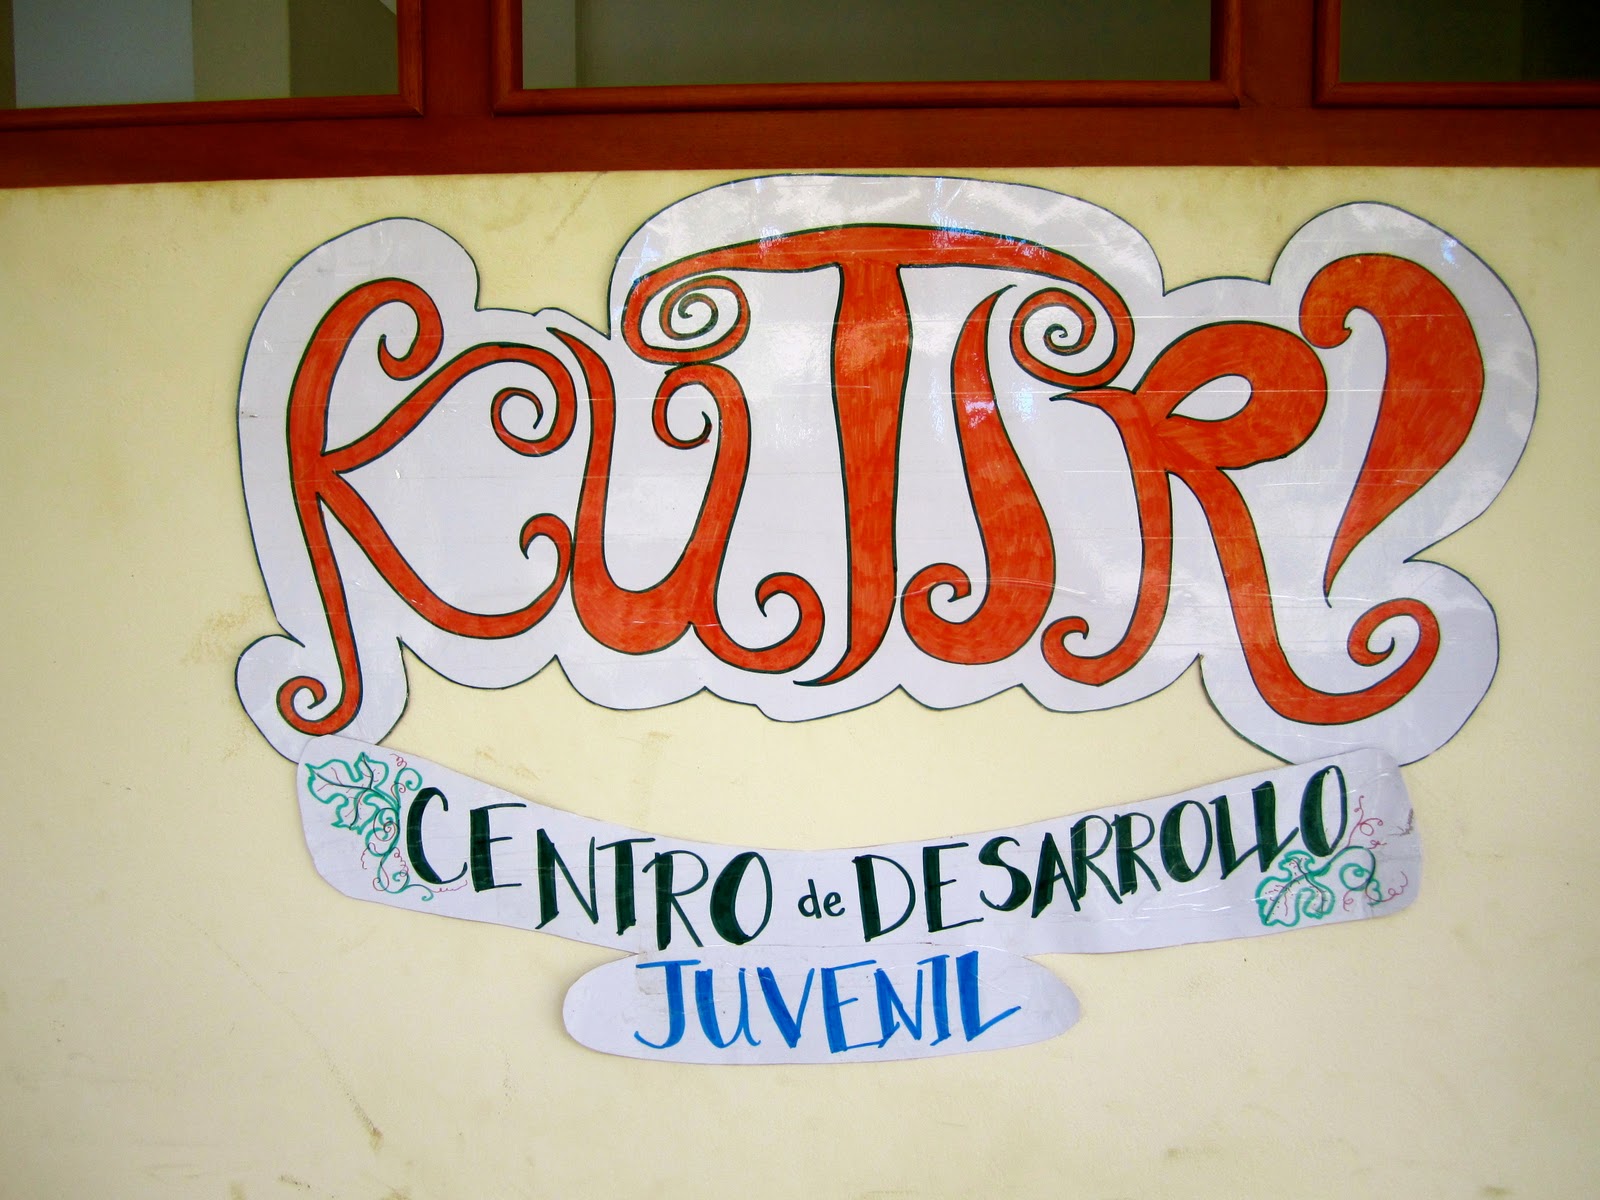 KUTIRI
CENTRO de DESARROLLO
JUVENIL